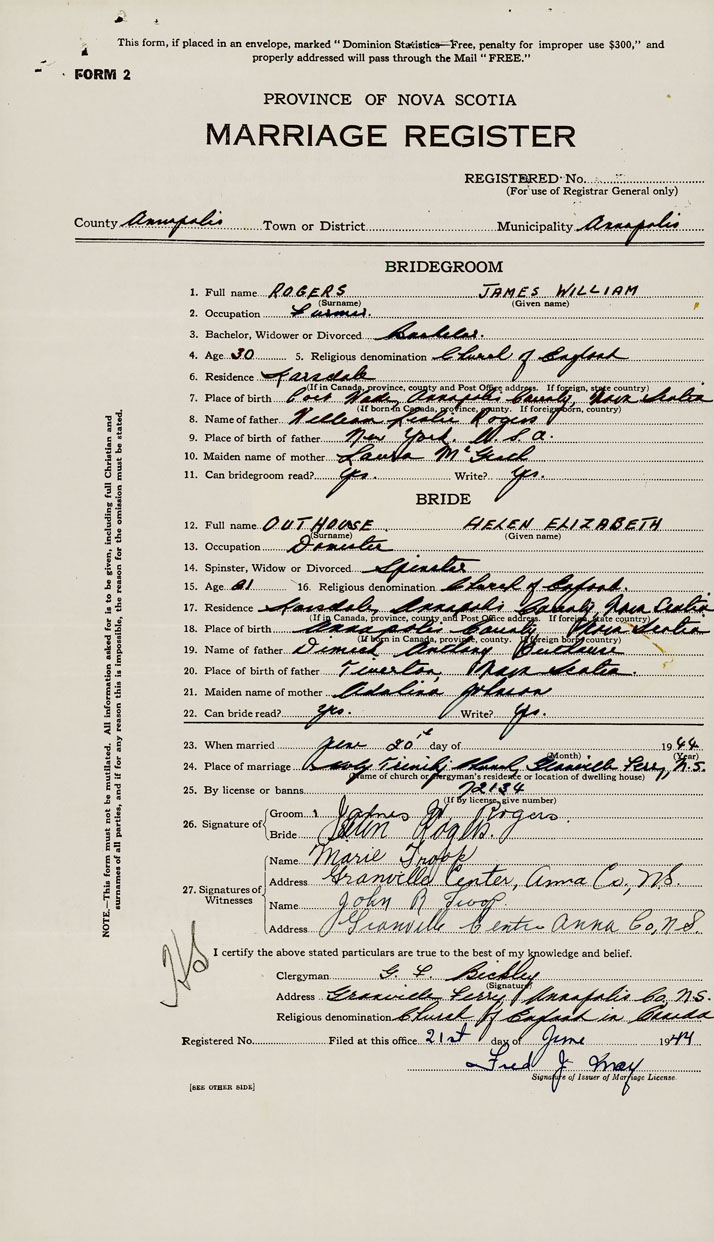 This form, if placed in an envelope, marked "Dominion Statistics—Free, penalty for improper use $300," and
properly addressed will pass through the Mail "FREE."
FORM 2
PROVINCE OF NOVA SCOTIA
MARRIAGE REGISTER
REGISTERED No.
(For use of Registrar General only)
County Annapolis Town or District Municipality Annapolis
BRIDEGROOM
1. Full name ROGERS JAMES WILLIAM
(Surname) (Given name)
2. Occupation Farmer.
3. Bachelor, Widower or Divorced Bachelor.
4. Age 30 5. Religious denomination Church of England
6. Residence Karsdale
(If in Canada, province, county and Post Office address. If foreign, state country)
7. Place of birth Port Wade, Annapolis County, Nova Scotia
(If born in Canada, province, county. If foreign born, country)
8. Name of father William Leslie Rogers
9. Place of birth of father New York. U.S.A.
10. Maiden name of mother Laura
11. Can bridegroom read? Yes. Write? Yes.
BRIDE
12. Full name OUTHOUSE HELEN ELIZABETH
(Surname) (Given name)
13. Occupation Domestic
14. Spinster, Widow or Divorced Spinster
15. Age 21 16. Religious denomination Church of England.
17. Residence Karsdale, Annapolis County, Nova Scotia
(If in Canada, province, county and Post Office address. If foreign, state country)
18. Place of birth Annapolis County Nova Scotia
(If born in Canada, province, county. If foreign born country)
19. Name of father Anthony Outhouse
20. Place of birth of father Tiverton, Nova Scotia.
21. Maiden name of mother Adalina Johnson
22. Can bride read? Yes. Write? Yes.
23. When married June 20th day of 1944
(Month) (Year)
24. Place of marriage Holy Trinity Church, Granville Ferry, N.S.
(Name of church or clergyman's residence or location of dwelling house)
25. By license or banns 72134
(If by license, give number)
26. Signature of Groom James W Rogers.
Bride Helen Rogers.
27. Signatures of Witnesses Name Marie Troop
Address Granville Center, Anna Co, N.S.
Name John R Troop.
Address Granville Centre Anna Co, N.S.
I certify the above stated particulars are true to the best of my knowledge and belief.
Clergyman G. L. Bickley
(Signature)
Address Granville Ferry, Annapolis Co, N.S.
Religious denomination Church of England in Canada
Registered No. Filed at this office 21st day of June 1944
Fred J May
Signature of Issuer of Marriage License.
[SEE OTHER SIDE]
NOTE.—This form must not be mutilated. All information asked for is to be given, including full Christian and
surnames of all parties, and if for any reason this is impossible, the reason for the omission must be stated.